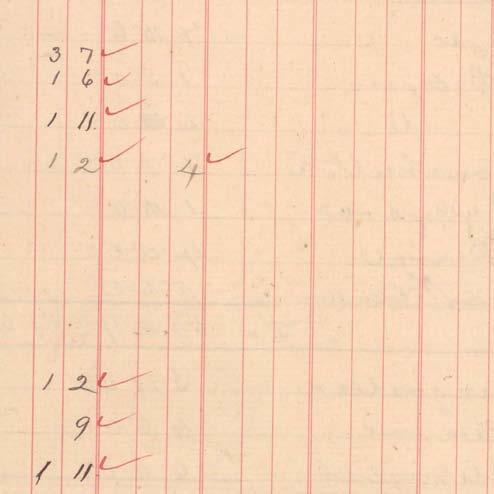 3 7
1 6
1 11
1 2 4
1 2
9
1 11